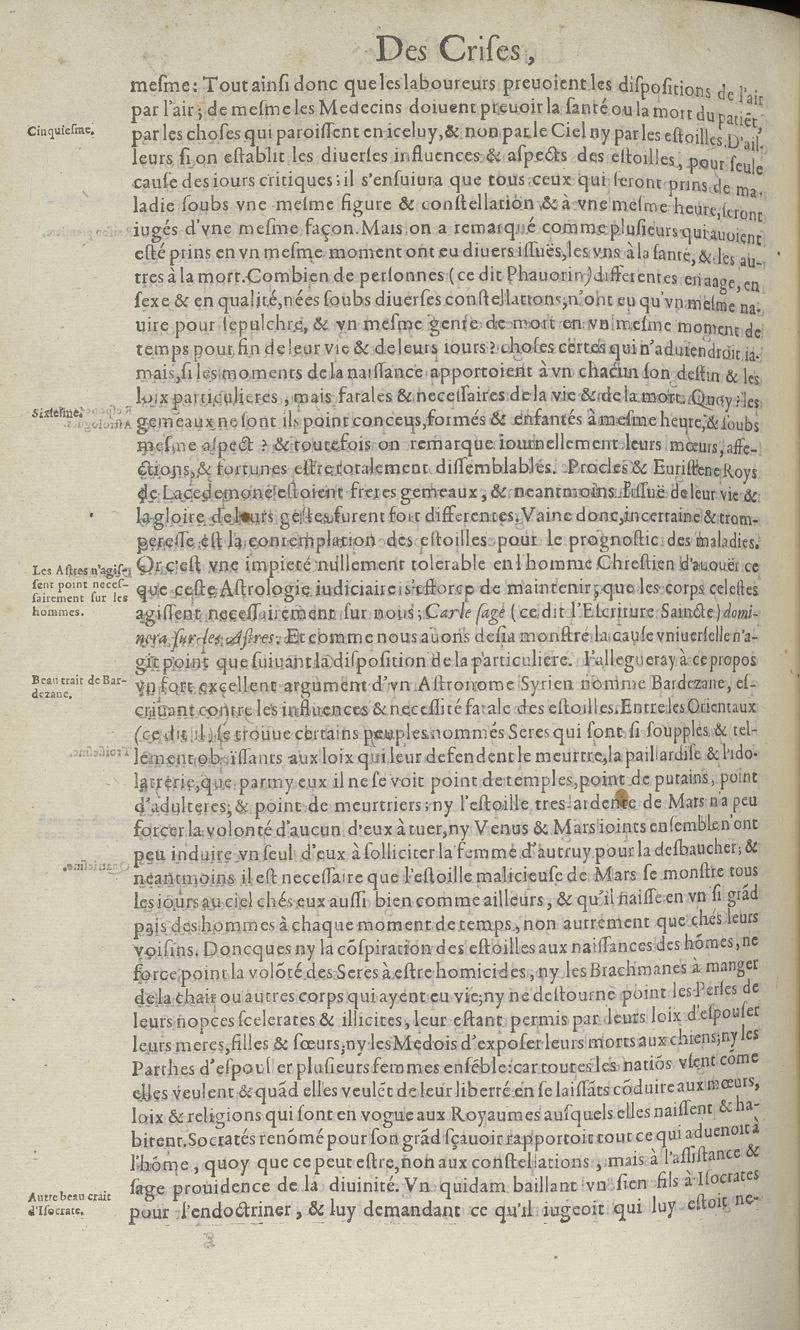 Des Criſes,
meſme: Tout ainſi donc que les laboureurs preuoient les diſpoſitions de l'air
par l'air; de meſme les Medecins doiuent preuoir la ſanté ou la mort du patiẽt
Cinquieſme.
par les choſes qui paroiſſent en iceluy, & non par le Ciel ny par les eſtoilles. D'ail-
leurs ſi on eſtablit les diuerſes influences & aſpects des eſtoilles, pour ſeule
cauſe des iours critiques; il s'enſuiura que tous ceux qui ſeront prins de ma-
ladie ſoubs vne meſme figure & conſtellation & à vne meſme heure, ſeront
iugés d'vne meſme façon. Mais on a remarqué comme pluſieurs qui auoient
eſté prins en vn meſme moment ont eu diuers iſſuës, les vns à la ſanté, & les au-
tres à la mort. Combien de perſonnes (ce dit Phauorin) differentes en aage, en
ſexe & en qualité, nées ſoubs diuerſes conſtellations, n'ont eu qu'vn meſme na-
uire pour ſepulchre, & vn meſme genre de mort en vn meſme moment de
temps pour fin de leur vie & de leurs iours? choſes certes qui n'aduiendroit ia-
mais, ſi les moments de la naiſſance apportoient à vn chacun ſon deſtin & les
loix particulieres, mais fatales & neceſſaires de la vie & de la mort. Quoy? les
Sixieſme.
gemeaux ne ſont ils point conceus, formés & enfantés à meſme heure, & ſoubs
meſme aſpect? & toutefois on remarque iournellement leurs mœurs, affe-
ctions, & fortunes eſtre totalement diſſemblables. Procles & Euriſtene Roys
de Lacedemone eſtoient freres gemeaux, & neantmoins l'iſſuë de leur vie &
la gloire de leurs geſtes furent fort differentes. Vaine donc, incertaine & trom-
pereſſe eſt la contemplation des eſtoilles pour le prognoſtic des maladies.
Les Aſtres n'agiſ-
ſent point neceſ-
ſairement ſur les
hommes.
Or c'eſt vne impieté nullement tolerable en l'homme Chreſtien d'auouër ce
que ceſte Aſtrologie iudiciaire s'efforce de maintenir, que les corps celeſtes
agiſſent neceſſairement ſur nous; Car le ſage (ce dit l'Eſcriture Saincte) domi-
nera ſur les Aſtres. Et comme nous auons deſia monſtré la cauſe vniuerſelle n'a-
git point que ſuiuant la diſpoſition de la particuliere. I'allegueray à ce propos
Beau trait de Bar-
dezane.
vn fort excellent argument d'vn Aſtronome Syrien nommé Bardezane, eſ-
criuant contre les influences & neceſſité fatale des eſtoilles. Entre les Orientaux
(ce dit il) ſe trouue certains peuples nommés Seres qui ſont ſi ſoupples & tel-
lement obeïſſants aux loix qui leur defendent le meurtre, la paillardiſe & l'ido-
latrerie, que parmy eux il ne ſe voit point de temples, point de putains, point
d'adulteres, & point de meurtriers; ny l'eſtoille tres-ardente de Mars n'a peu
forcer la volonté d'aucun d'eux à tuer, ny Venus & Mars ioints enſemble n'ont
peu induire vn ſeul d'eux à ſolliciter la femme d'autruy pour la deſbaucher; &
neantmoins il eſt neceſſaire que l'eſtoille malicieuſe de Mars ſe monſtre tous
les iours au ciel chés eux auſſi bien comme ailleurs, & qu'il naiſſe en vn ſi grãd
païs des hommes à chaque moment de temps, non autrement que chés leurs
voiſins. Doncques ny la cõſpiration des eſtoilles aux naiſſances des hõmes, ne
force point la volõté des Seres à eſtre homicides, ny les Brachmanes à manger
de la chair ou autres corps qui ayent eu vie; ny ne deſtourne point les Perſes de
leurs nopces ſcelerates & illicites, leur eſtant permis par leurs loix d'eſpouſer
leurs meres, filles & ſœurs; ny les Medois d'expoſer leurs morts aux chiens; ny les
Parthes d'eſpouſer pluſieurs femmes enſẽble: car toutes les natiõs vſent cõme
elles veulent & quãd elles veulẽt de leur liberté en ſe laiſſãts cõduire aux mœurs,
loix & religions qui ſont en vogue aux Royaumes auſquels elles naiſſent & ha-
bitent. Socratés renõmé pour ſon grãd ſçauoir rapportoit tout ce qui aduenoit à
l'hõme, quoy que ce peut eſtre, non aux conſtellations, mais à l'aſſiſtance &
ſage prouidence de la diuinité. Vn quidam baillant vn ſien fils à Iſocrates
Autre beau trait
d'Iſocrate.
pour l'endoctriner, & luy demandant ce qu'il iugeoit qui luy eſtoit ne-